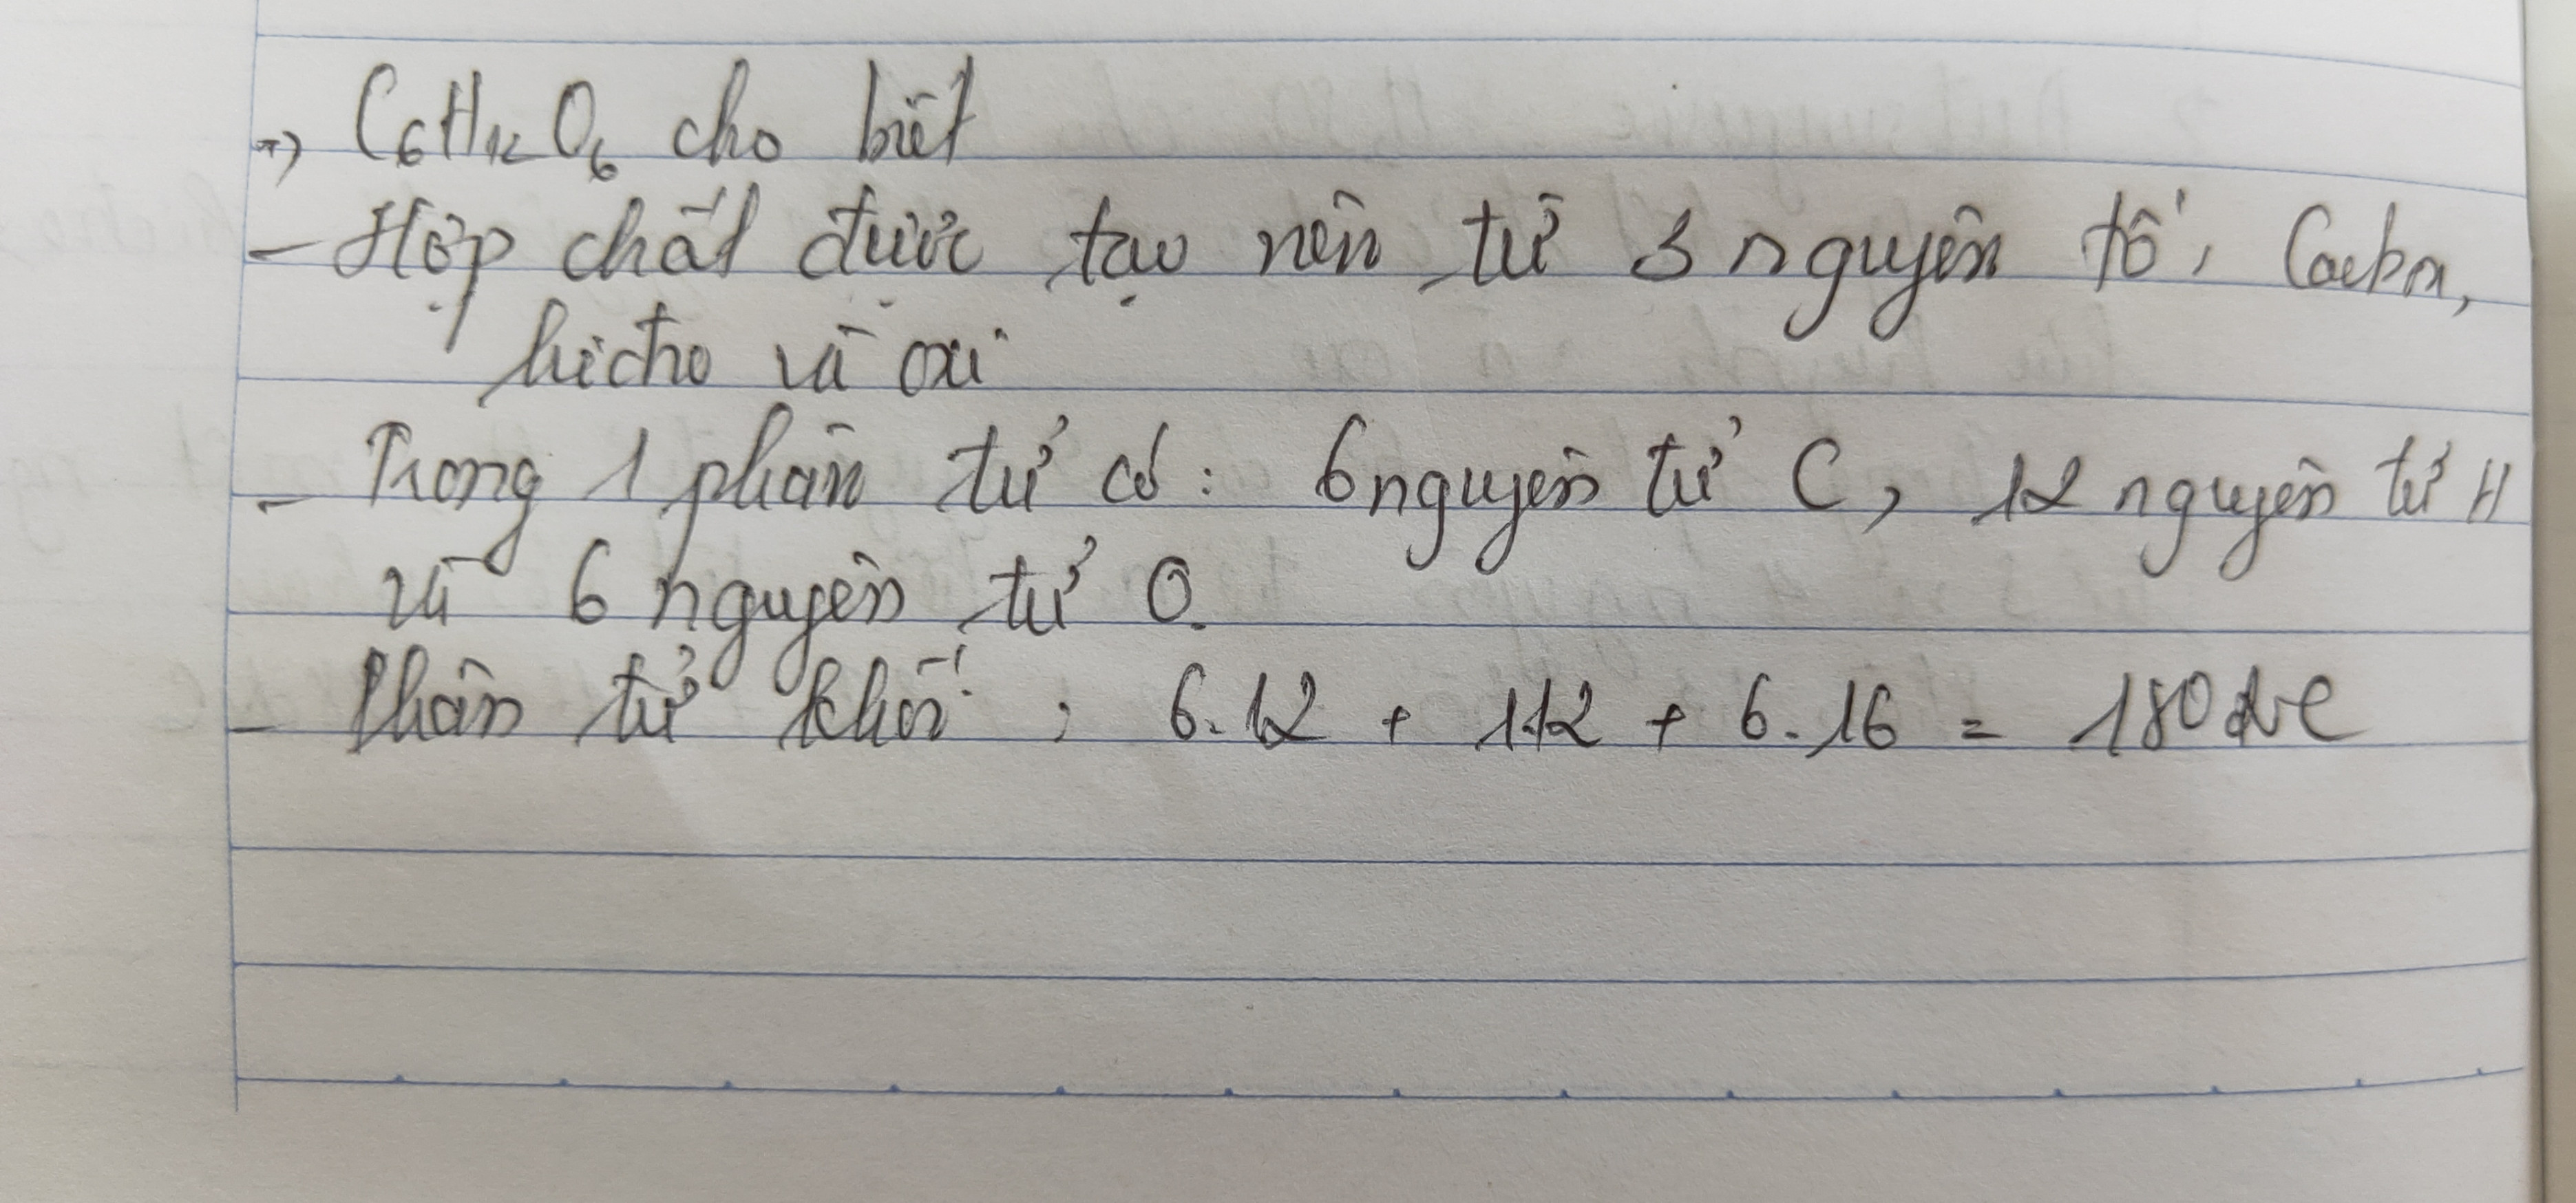 => C₆H₁₂O₆ cho biết
- Hợp chất được tạo nên từ 3 nguyên tố: Cacbon,
hiđro và oxi
- Trong 1 phân tử có: 6 nguyên tử C, 12 nguyên tử H
và 6 nguyên tử O.
- Phân tử khối: 6.12 + 1.12 + 6.16 = 180 đvC